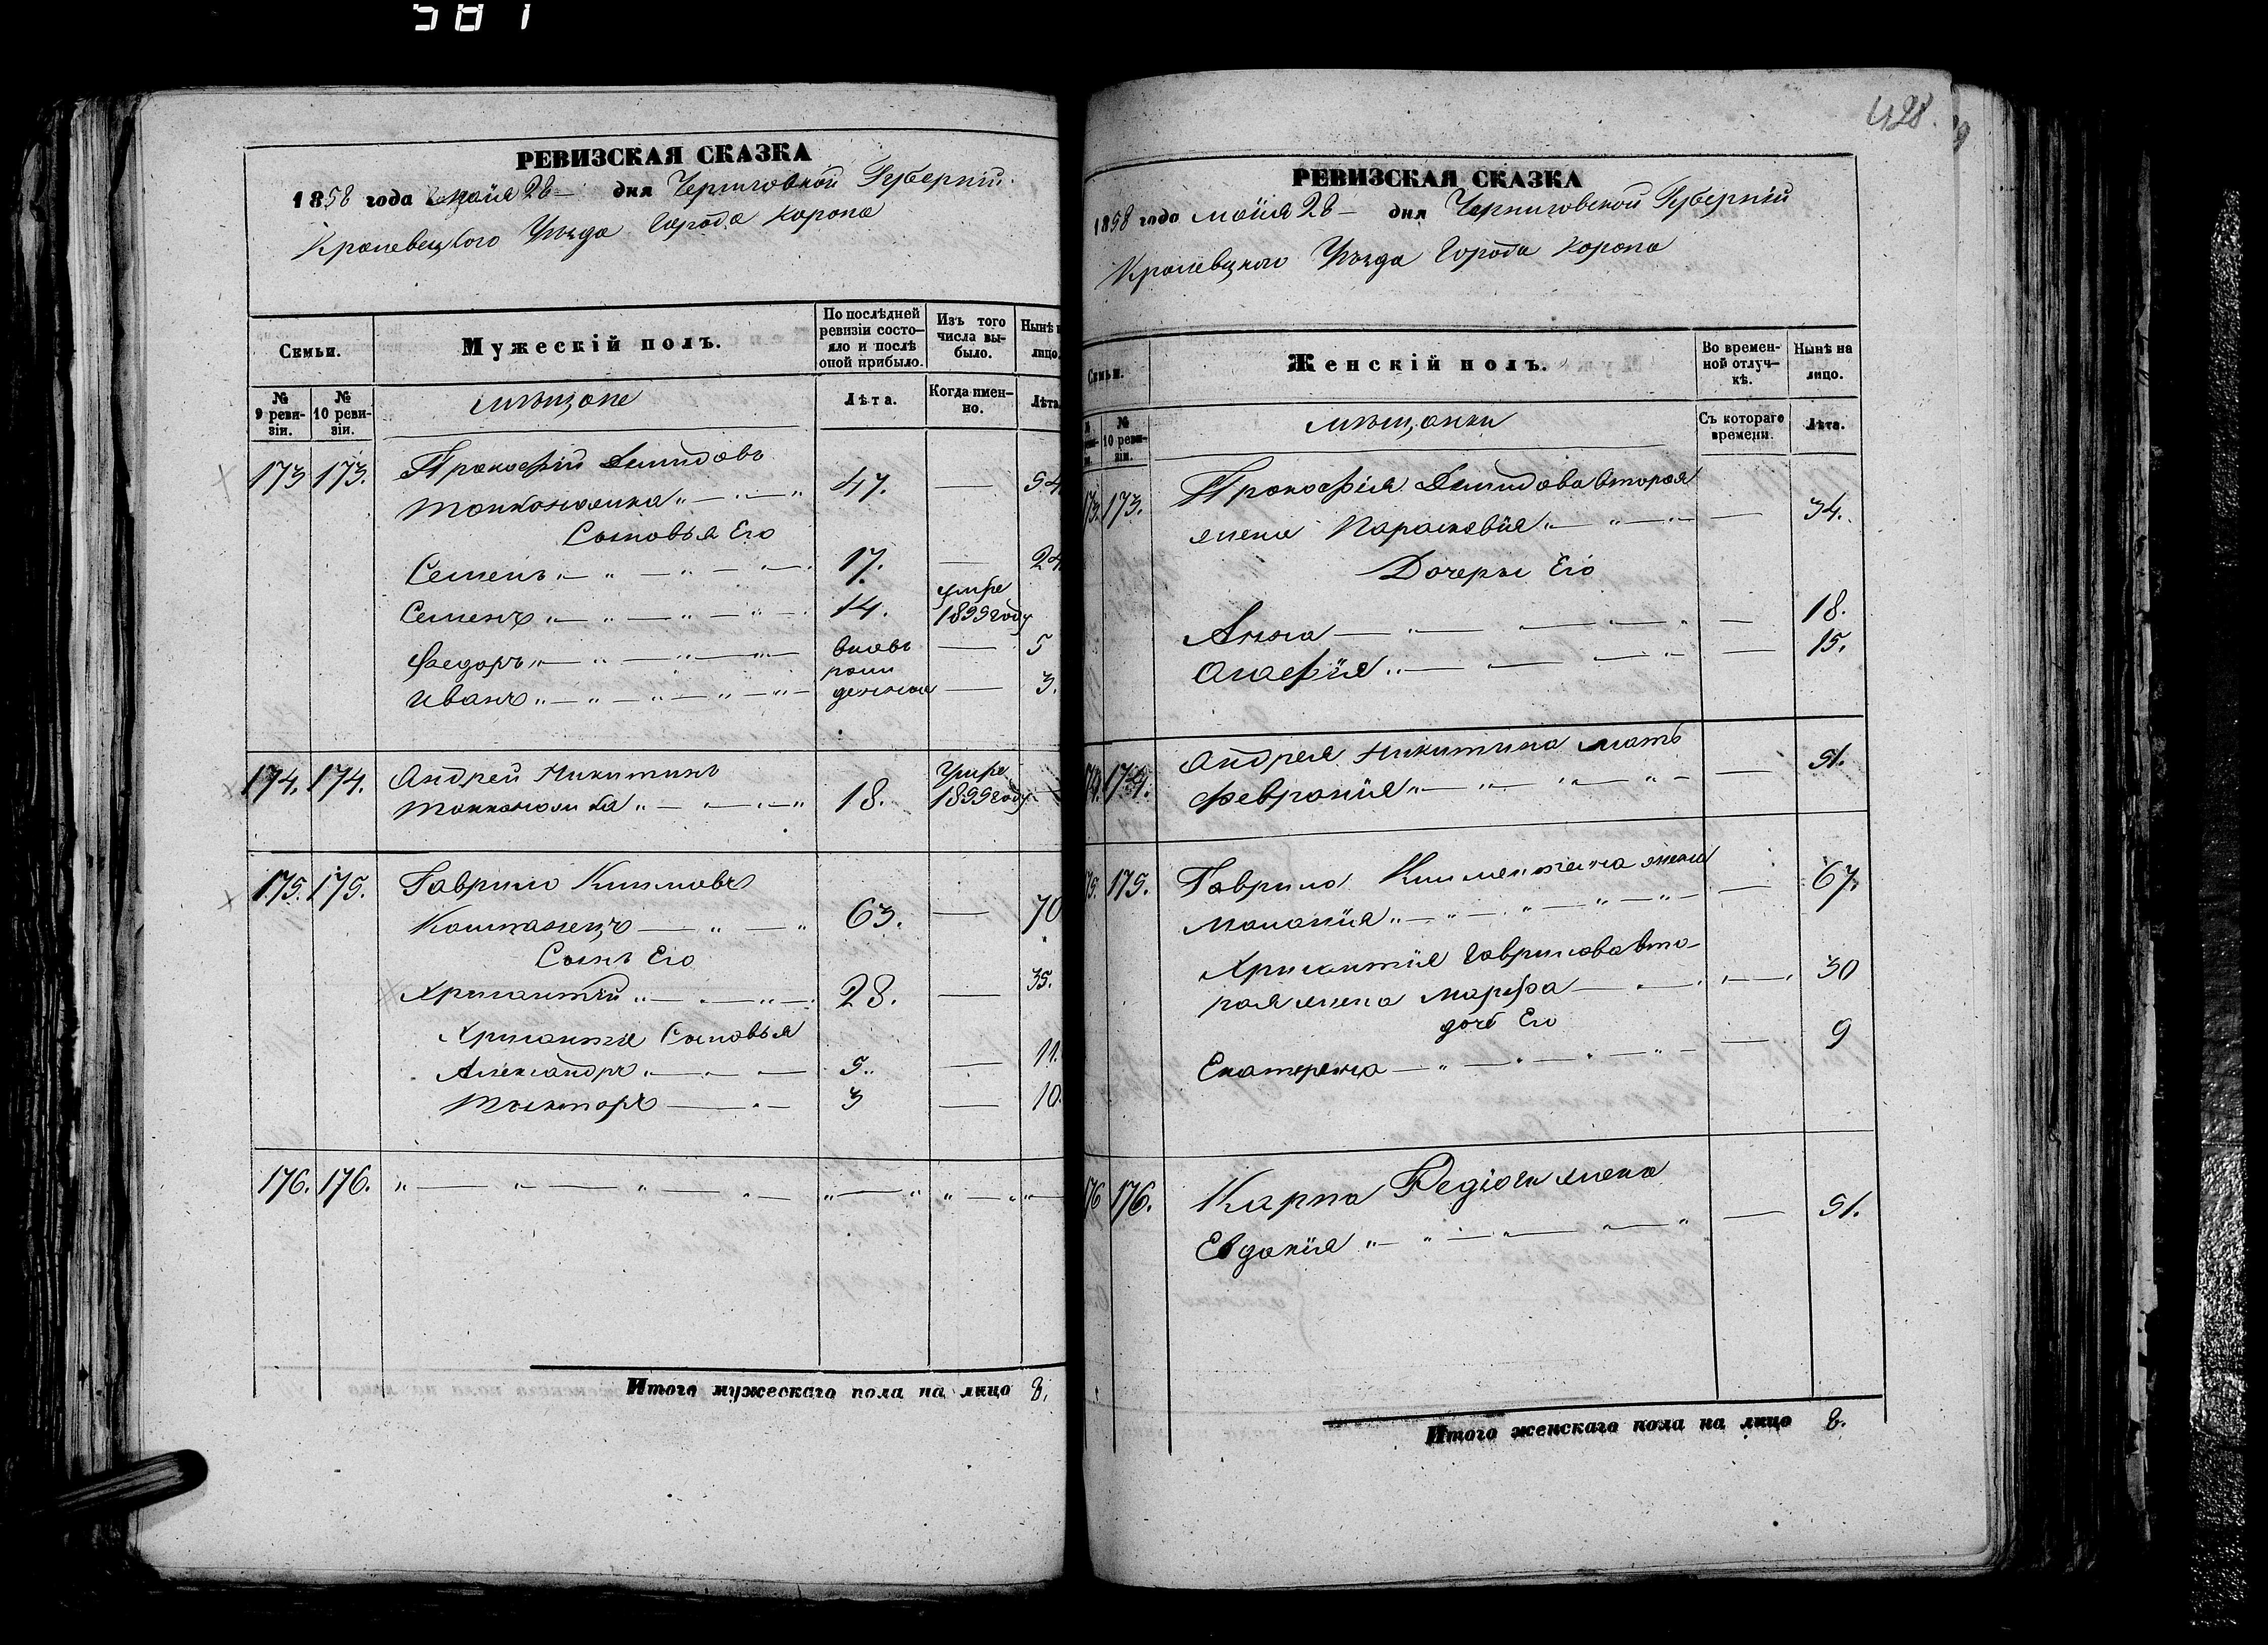 581
РЕВИЗСКАЯ СКАЗКА
1858 года Майя 28 дня Черниговской Губерніи
Кролевецкого Уѣзда Города Коропа
Семьи.
Мужескій полъ.
По послѣдней ревизіи состояло и послѣ оной прибыло.
Изъ того числа выбыло.
Нынѣ
лицо.
№ 9 ревизіи.
№ 10 ревизіи.
мѣщане
Лѣта.
Когда именно.
Лѣта
173 173. Прокофій Демидовъ
47. — 54
Сыновья Его
Семенъ 17. — 24
Семенъ 14. умре 1855 году
Федоръ вновь — 5
Иванъ рожденные — 3.
174. 174. Андрей Никитинъ
18. Умре 1855 году
175. 175. Гаврило Климовъ
63. — 70
Сынъ Его
Хрисантій 28. — 35.
Хрисантія Сыновья
Александръ 5. — 11.
3 — 10.
176. 176.
Итого мужескаго пола на лицо 8.
428.
РЕВИЗСКАЯ СКАЗКА
1858 года майя 28 дня Черниговской Губерніи
Кролевецкого Уѣзда Города Коропа
Семьи.
Женскій полъ.
Во временной отлучкѣ.
Нынѣ на лицо.
№ 10 ревизіи.
мѣщанки
Съ котораго времени.
Лѣта.
173 173. Прокофія Демидова вторая
жена Парасковія — 34.
Дочеры Его
Анна — 18.
Агафія — 15.
174. 174. Андрея Никитина мать
Февронія — 51.
175. 175. Гаврила жена
Маланія — 67.
Хрисантія Гаврилова вто-
рая жена Марфа — 30
дочь Его
Екатерина — 9
176 176. Карпа жена
Евдокія — 51.
Итого женскаго пола на лицо 8.